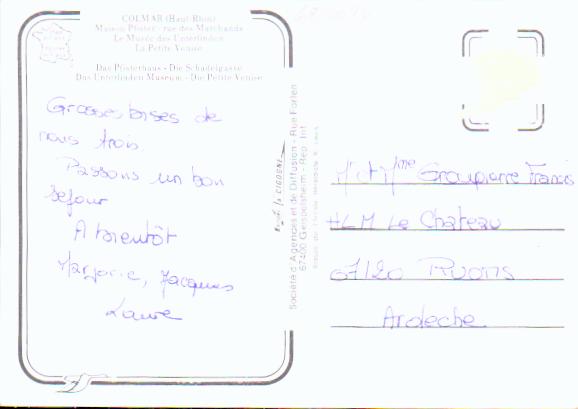 COLMAR (Haut-Rhin)
Maison Pfister - rue des Marchands
Le Musée des Unterlinden
La Petite Venise
Das Pfisterhaus - Die Schädelgasse
Das Unterlinden Museum - Die Petite Venise
Grosses bises de
nous trois
Passons un bon
séjour
A bientôt
Marjorie, Jacques
Laure
Société d'Agences et de Diffusion - Rue Forlen
67400 Geispolsheim - Rep. Int.
Mr et Mme Groupierre Francis
HLM Le Chateau
07120 Ruoms
Ardeche